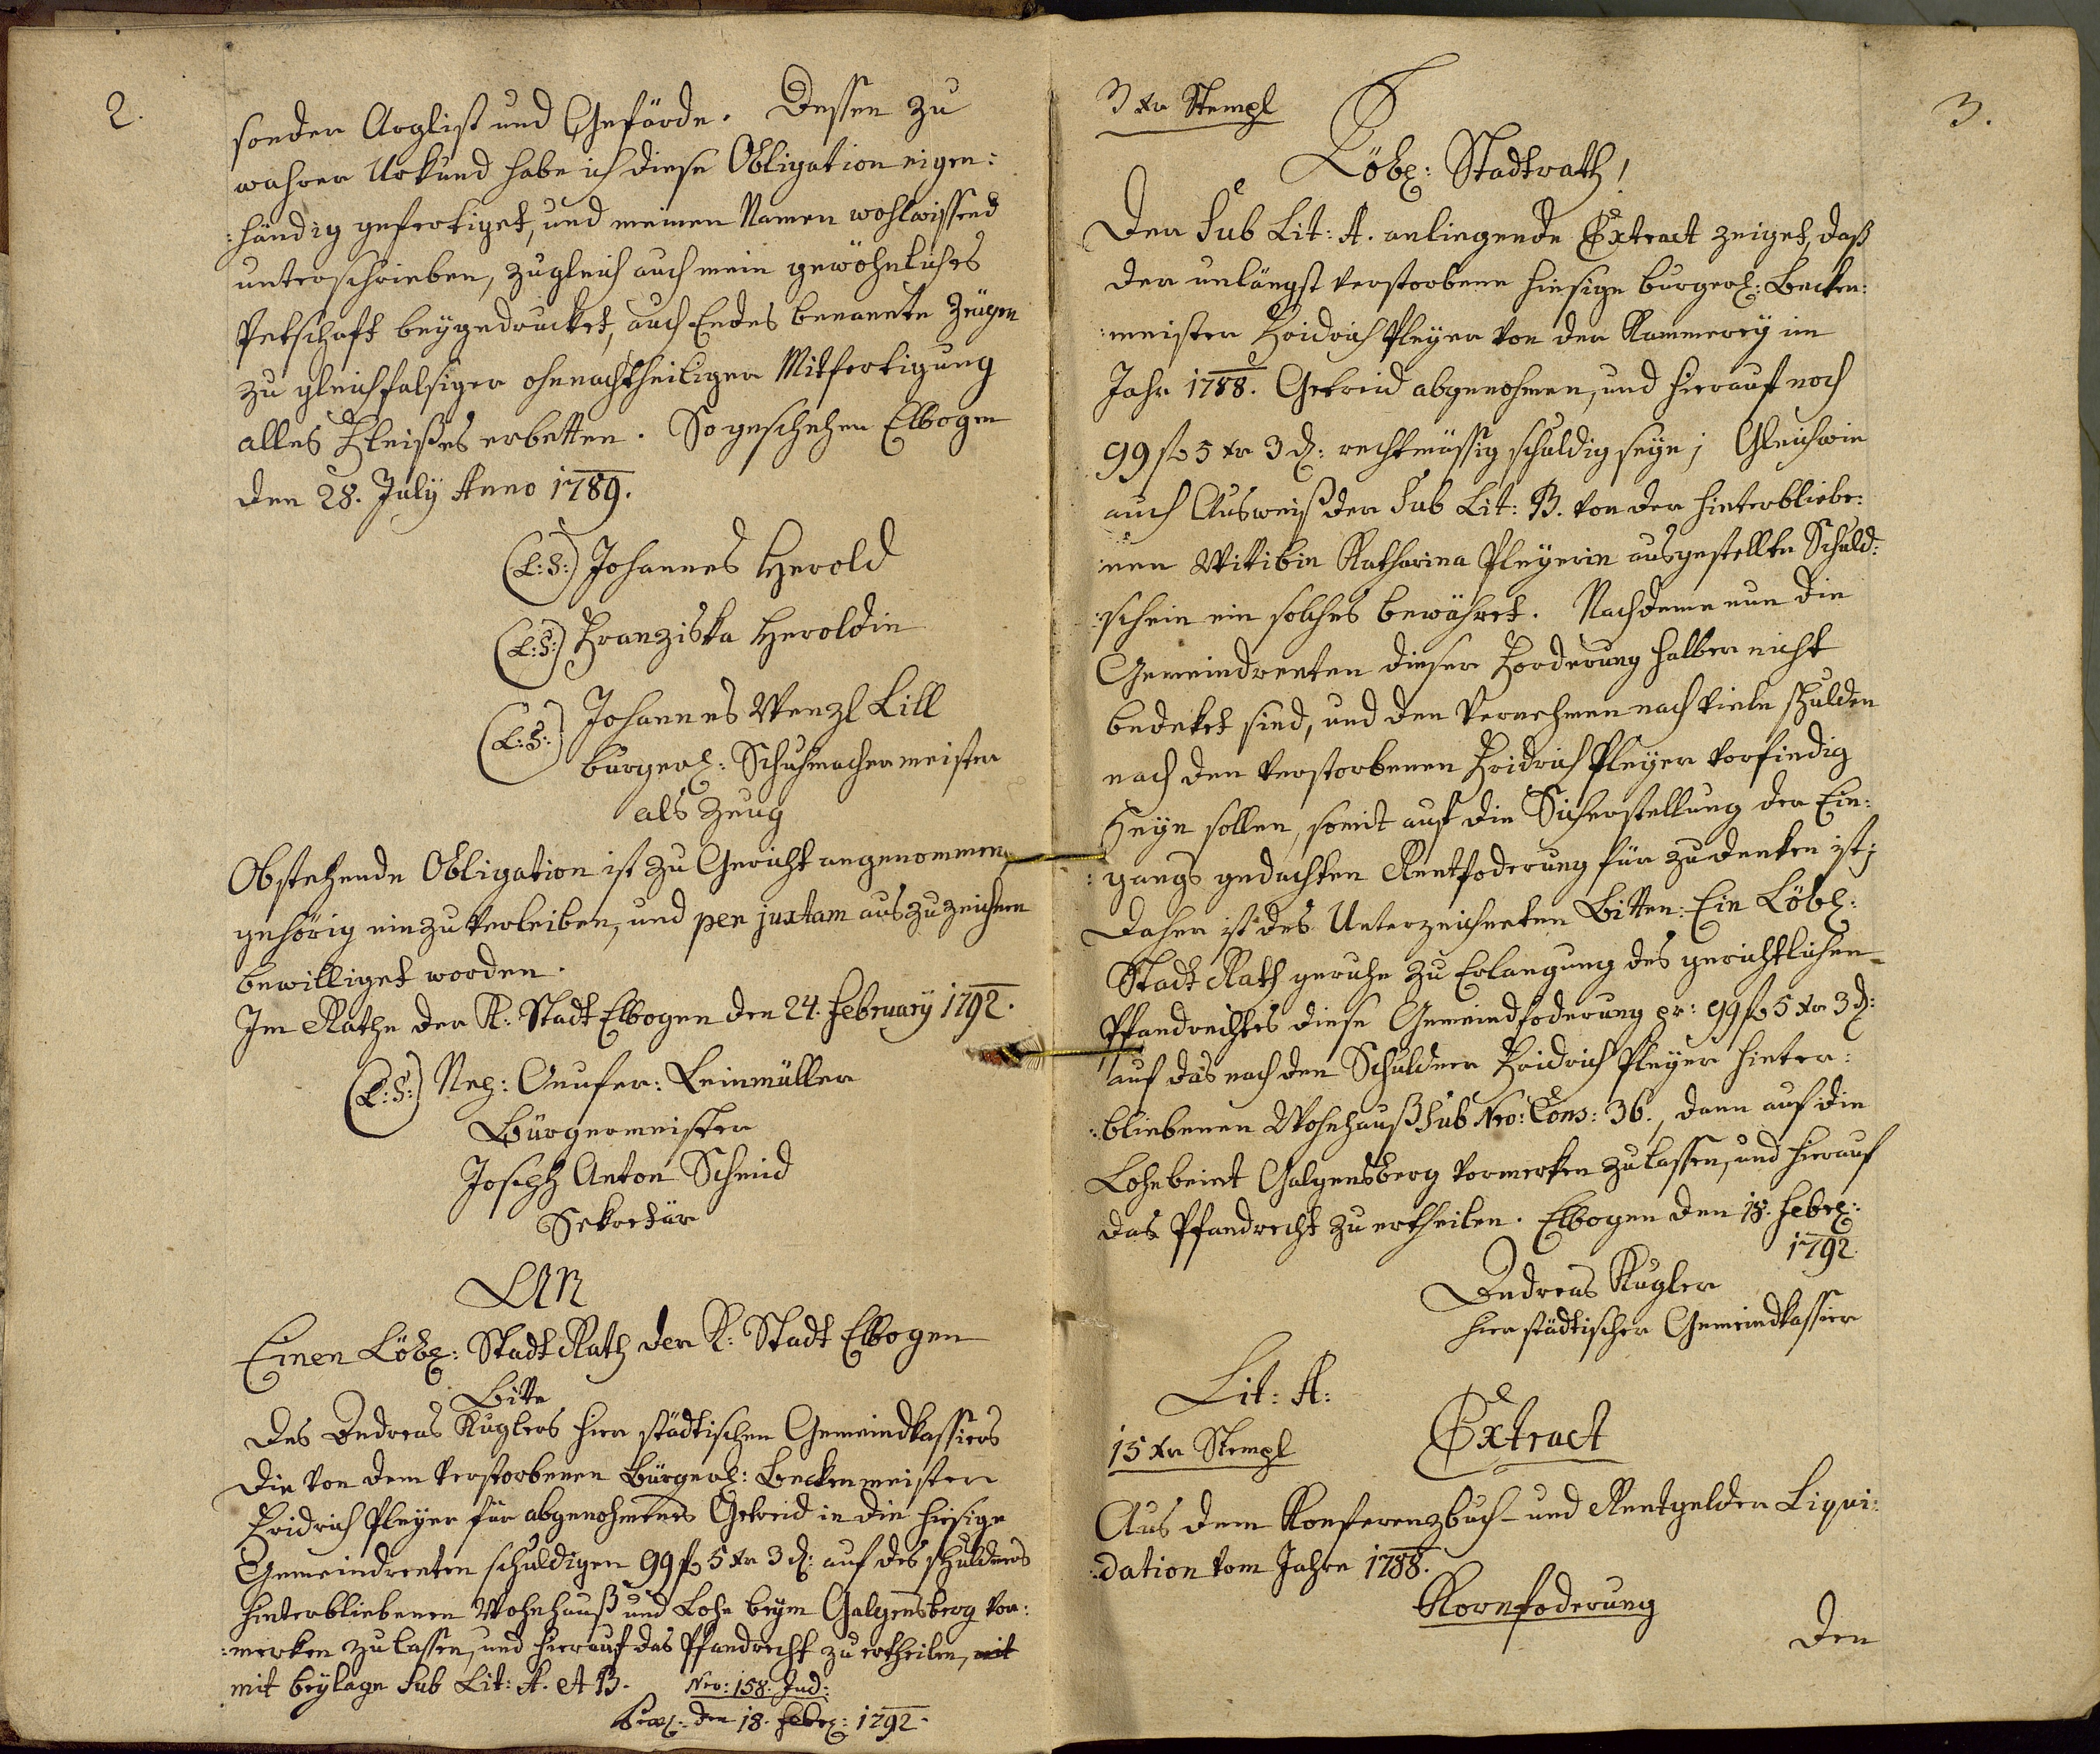 2.
sonder Arglist und Gefärde. Dessen zu
wahrer Urkund habe ich diese Obligation eigen:
:händig gefertiget, und meinen Namen wohlwissend
unterschrieben, zugleich auch mein gewöhnliches
Petschaft beÿgedrucket, auch Endes benannte Zeugen
zu gleichfalsiger ohnnachtheiliger Mitfertigung
alles Fleißes erbetten. So geschehen Elbogen
den 28. Julÿ Anno 1789.
(L:S:) Johannes Herold
(L:S:) Franziska Heroldin
(L:S:) Johannes Wenzl Lill
burgerl: Schuhmachermeister
als Zeug
Obstehende Obligation ist zu Gericht angenommen,
gehörig einzuverleiben, und per juxtam auszuzeichnen
bewilliget worden.
Im Rathe der K: Stadt Elbogen den 24. Februarÿ 1792.
(L:S:) Leinmüller
Bürgermeister
Joseph Anton Schmid
Sekretär
An
Einen Löbl: Stadt Rath der K: Stadt Elbogen
Bitte
Des Andreas Kuglers hier städtischen Gemeindkassiers
die von dem verstorbenen Bürgerl: Beckenmeister
Fridrich Pleÿer für abgenohmenes Getreid in die hiesige
Gemeindrenten schuldigen 99 f 5 xr 3 d: auf des schuldners
hinterbliebenen Wohnhauß und Lohe beÿm Galgensberg vor:
:merken zu lassen, und hierauf das Pfandrecht zu ertheilen, mit
mit beÿlage Sub Lit: A. et B. Nro: 158. Jud:
den 18. Febrl: 1792.
3.
3 xr Stempl
Löbl: Stadtrath!
Der Sub Lit: A. anliegende Extract zeiget, daß
der unlängst verstorbene hiesige burgerl: Becken:
:meister Fridrich Pleÿer von der Kammereÿ im
Jahr 1788. Getreid abgenohmen, und hierauf noch
99 f 5 xr 3 d: rechtmässig schuldig seÿe; Gleichwie
auch Ausweiß der Sub Lit: B. von der hinterbliebe:
:nen Wittibin Katharina Pleÿerin ausgestellte Schuld:
:schein ein solches bewähret. Nachdeme nun die
Gemeindrenten dieser Forderung halber nicht
bedeket sind, und dem Vernehmen nach viele schulden
nach den verstorbenen Fridrich Pleÿer vorfindig
seÿn sollen, somit auf die Sicherstellung der Ein:
:gangs gedachten Rentfoderung für zudenken ist;
Daher ist des Unterzeichneten Bitten: Ein Löbl:
Stadt Rath geruhe zu Erlangung des gerichtlichen
Pfandrechtes diese Gemeindfoderung pr: 99 f 5 xr 3 d:
auf das nach den Schuldner Fridrich Pleÿer hinter:
:bliebenen Wohnhauß Sub Nro: Cons: 36., dann auf die
Lohe beint Galgensberg vormerken zu lassen, und hierauf
das Pfandrecht zu ertheilen. Elbogen den 18. Febrl:
1792.
Andreas Kugler
hier städtischer Gemeindkassier
Lit: A:
15 xr Stempl
Extract
Aus dem Konferenzbuch- und Rentgelder Liqui:
:dation vom Jahre 1788.
Kornfoderung
Den